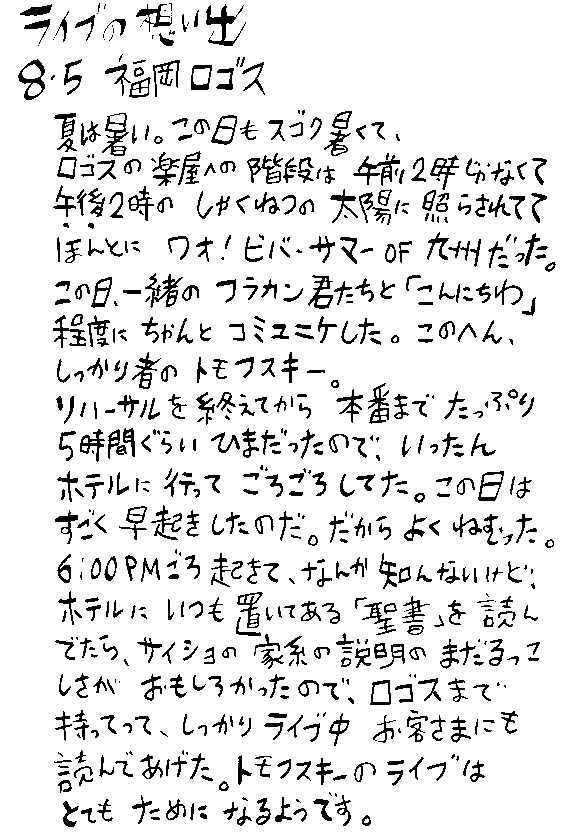 ライブの想い出
8・5 福岡ロゴス
夏は暑い。この日もスゴク暑くて、
ロゴスの楽屋への階段は 午前2時じゃなくて
午後2時の しゃくねつの 太陽に 照らされてて
ほんとに ワオ！ビバ・サマー OF 九州だった。
この日、一緒の フラカン君たちと「こんにちわ」
程度に ちゃんと コミュニケした。このへん、
しっかり者の トモフスキー。
リハーサルを終えてから 本番まで たっぷり
5時間ぐらい ひまだったので、いったん
ホテルに 行って ごろごろしてた。この日は
すごく 早起きしたのだ。だから よく ねむった。
6:00PMごろ 起きて、なんか 知んないけど、
ホテルに いつも 置いてある「聖書」を 読ん
でたら、サイショの 家系の 説明の まだるっこ
しさが おもしろかったので、ロゴスまで
持ってって、しっかり ライブ中 お客さまにも
読んであげた。トモフスキーの ライブは
とても ために なるようです。